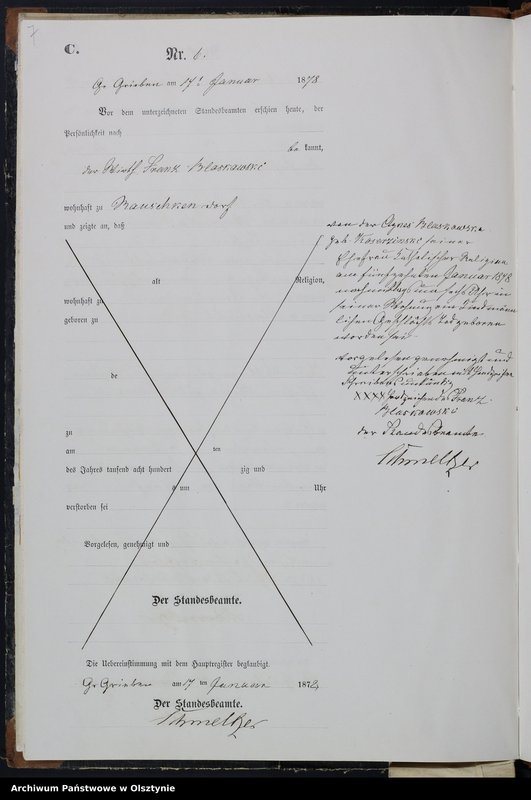 7
C.
Nr. 6.
Gr Grieben am 17t Januar 1878
Vor dem unterzeichneten Standesbeamten erschien heute, der
Persönlichkeit nach
be kannt,
der Wirth Frank Blaskowski
wohnhaft zu Rauschken dorf
und zeigte an, daß
von der Agnes Blaskowska
geb. seiner
Ehefrau katholischer Religion
am fünfzehnten Januar 1878
nachmittags um sechs Uhr in
seiner Wohnung ein Kind männ
lichen Geschlechts todgeboren
worden sei
vorgelesen genehmigt und
XXXX Franz
Blaskowski
der Standesbeamte
Schmeltzer
alt Religion,
wohnhaft zu
geboren zu
de
zu
am ten
des Jahres tausend acht hundert zig und
um Uhr
verstorben sei
Vorgelesen, genehmigt und
Der Standesbeamte.
Die Uebereinstimmung mit dem Hauptregister beglaubigt
Gr Grieben am 17 ten Januar 1878
Der Standesbeamte.
Schmeltzer
Archiwum Państwowe w Olsztynie